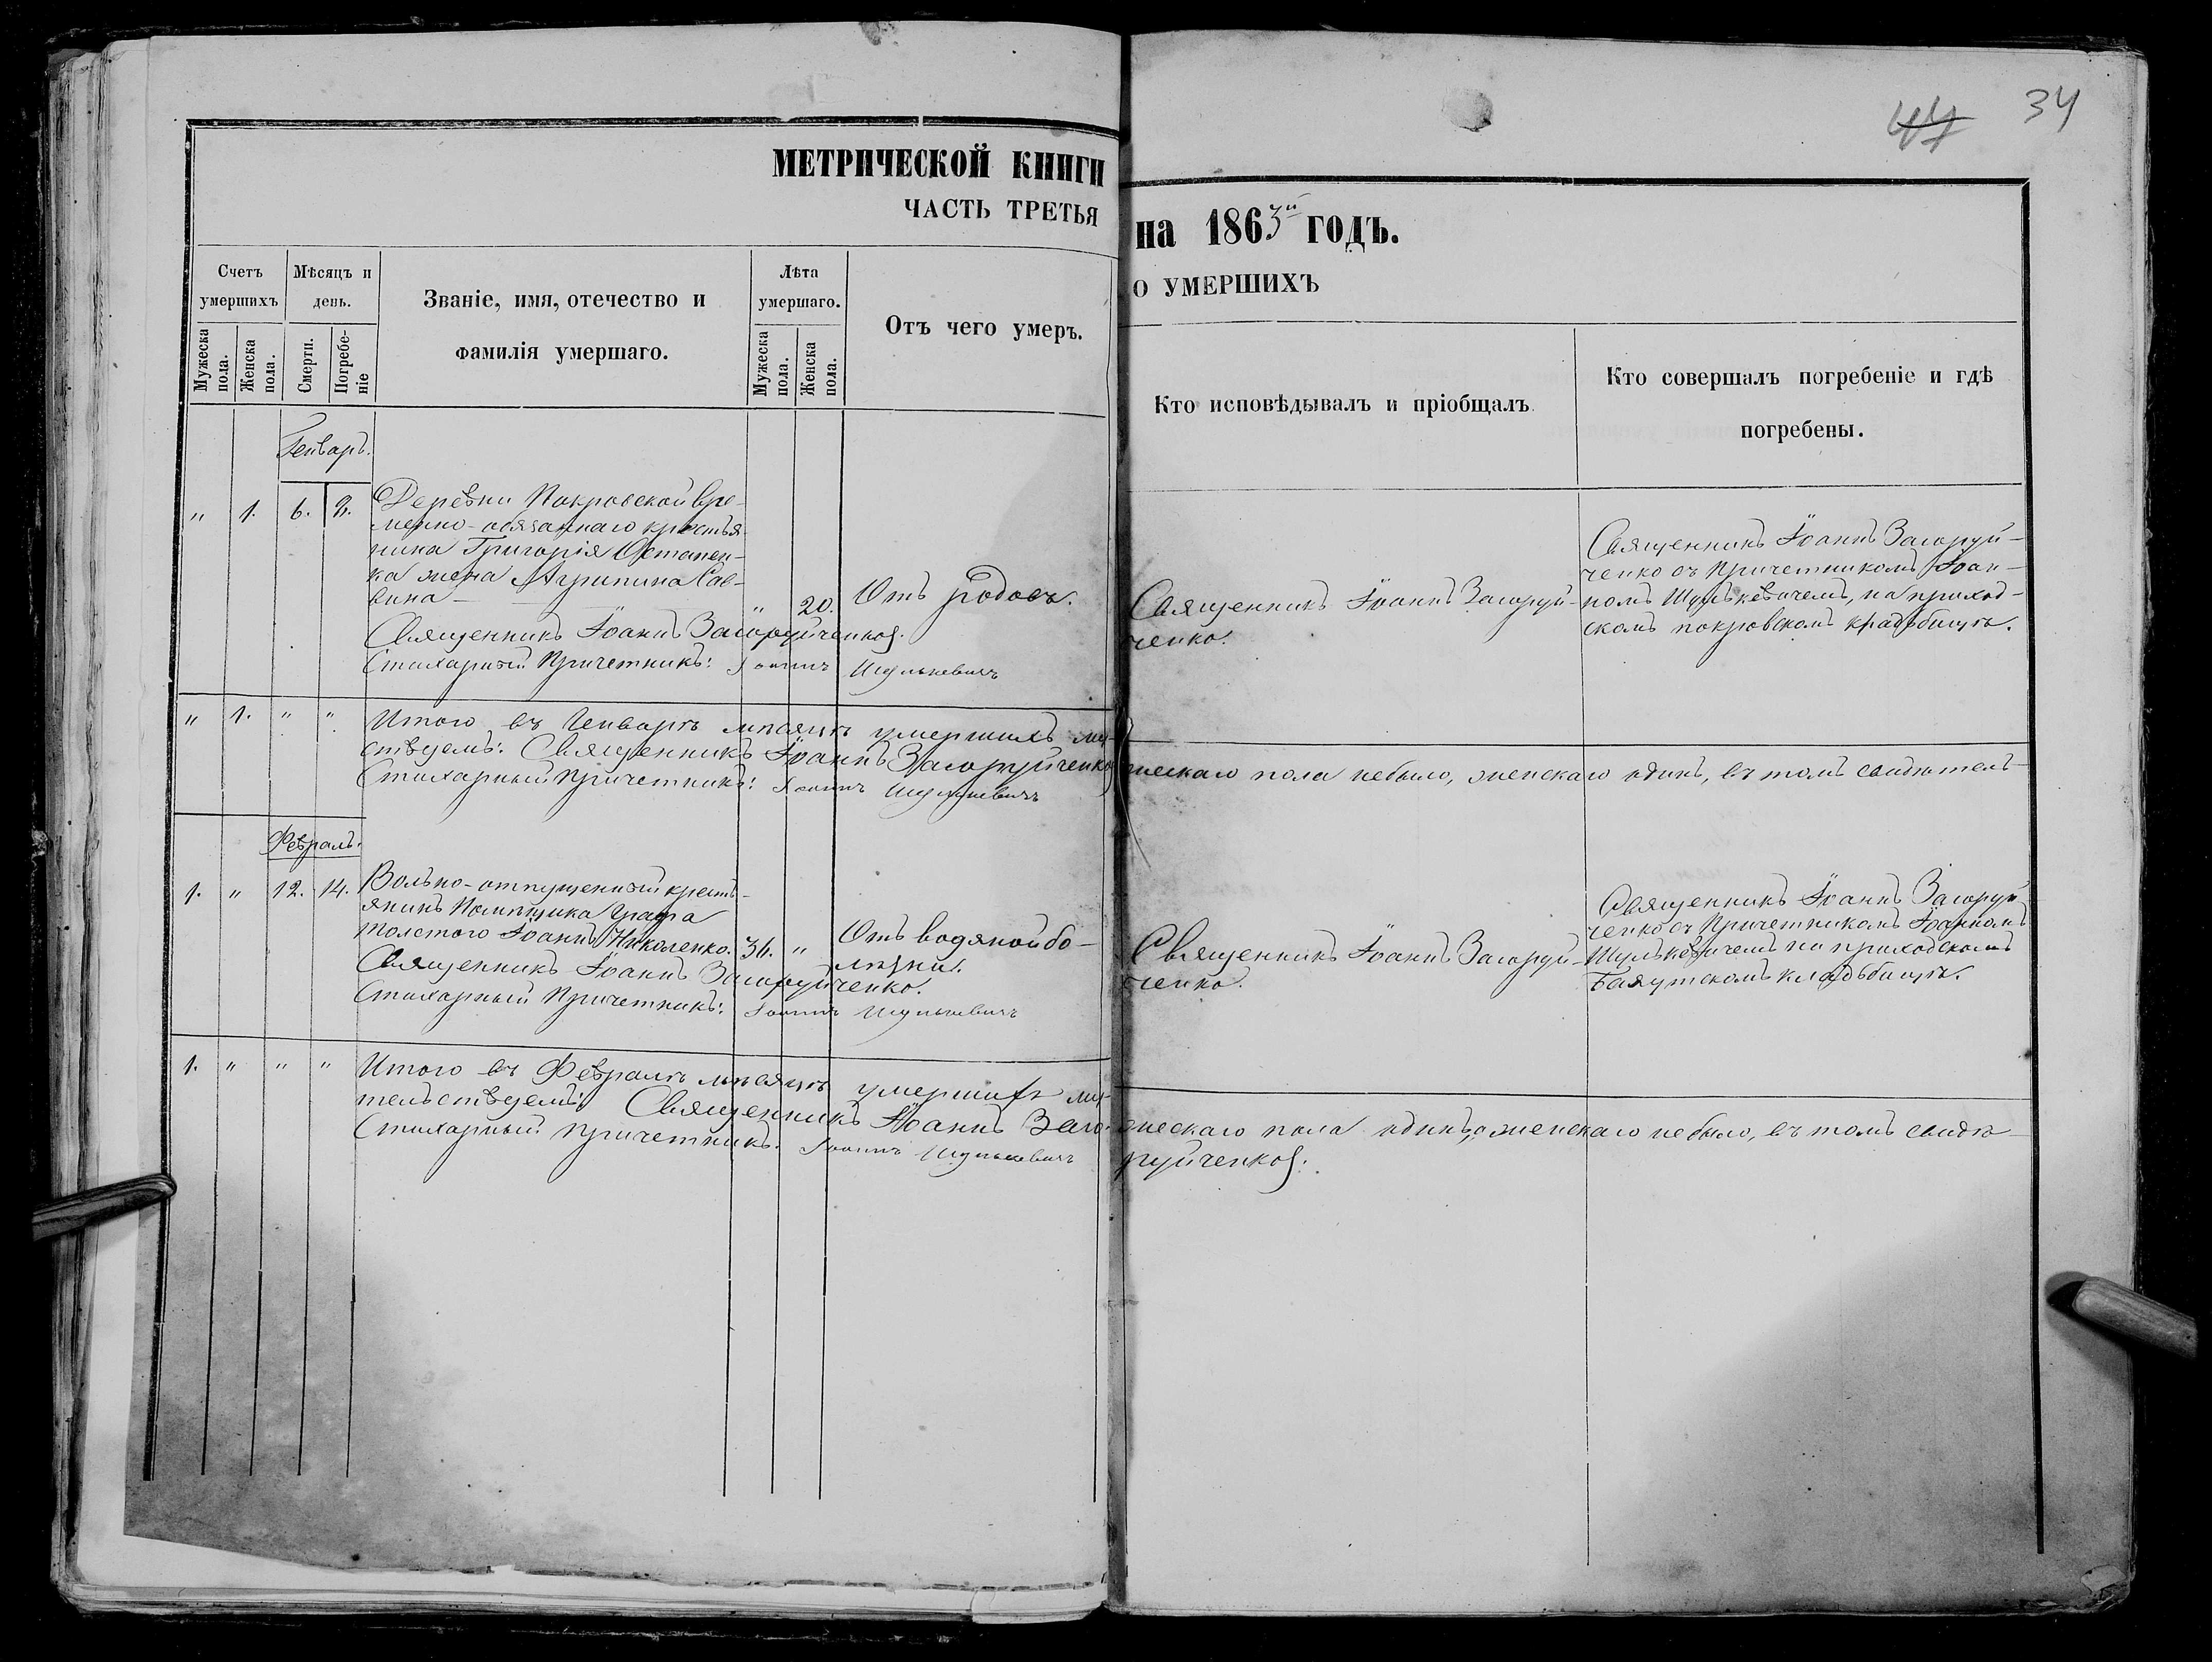 44 34
МЕТРИЧЕСКОЙ КНИГИ
ЧАСТЬ ТРЕТЬЯ
на 1863й ГОДЪ.
О УМЕРШИХЪ
Счетъ умершихъ
Мужеска пола.
Женска пола.
Мѣсяцъ и день.
Смерти.
Погребеніе
Званіе, имя, отечество и
фамилія умершаго.
Лѣта умершаго.
Мужеска пола.
Женска пола.
Отъ чего умеръ.
Кто исповѣдывалъ и пріобщалъ
Кто совершалъ погребеніе и гдѣ
погребены.
Генварь.
" 1. 6. 9.
Деревни Покровской вре-
менно-обязаннаго крестья-
нина Григорія Остапен-
ка жена Агрипина Сав-
вина
" 20.
Отъ родовъ.
Священникъ Іоаннъ Загоруйченко.
Стихарный Причетникъ: Іоаннъ Шулькевичъ
Священникъ Іоаннъ Загоруй-
ченко.
Священникъ Іоаннъ Загоруй-
ченко съ Причетникомъ Іоан-
номъ Шулькевичемъ, на приход-
скомъ покровскомъ кладбищѣ.
" 1. " "
Итого въ Генварѣ мѣсяцѣ умершихъ му-
жескаго пола небыло, женскаго одинъ, въ томъ свидѣтель-
ствуемъ: Священникъ Іоаннъ Загоруйченко
Стихарный Причетникъ: Іоаннъ Шулькевичъ
Февраль.
1. " 12. 14.
Вольно-отпущенный кресть-
янинъ Помѣщика Графа
Толстого Іоаннъ Николенко. 36. "
Отъ водяной бо-
лѣзни.
Священникъ Іоаннъ Загоруйченко.
Стихарный Причетникъ: Іоаннъ Шулькевичъ
Священникъ Іоаннъ Загоруй-
ченко.
Священникъ Іоаннъ Загоруй-
ченко съ Причетникомъ Іоанномъ
Шулькевичемъ на приходскомъ
кладьбищѣ.
1. " " "
Итого въ Февралѣ мѣсяцѣ умершихъ му-
жескаго пола одинъ, а женскаго небыло, въ томъ свидѣ-
тельствуемъ: Священникъ Іоаннъ Заго-
руйченко.
Стихарный причетникъ: Іоаннъ Шулькевичъ